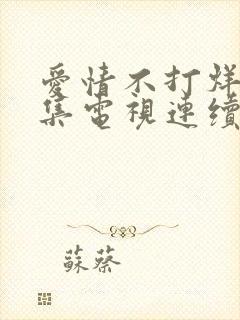 愛情不打烊
集電視連續
蘇蔡